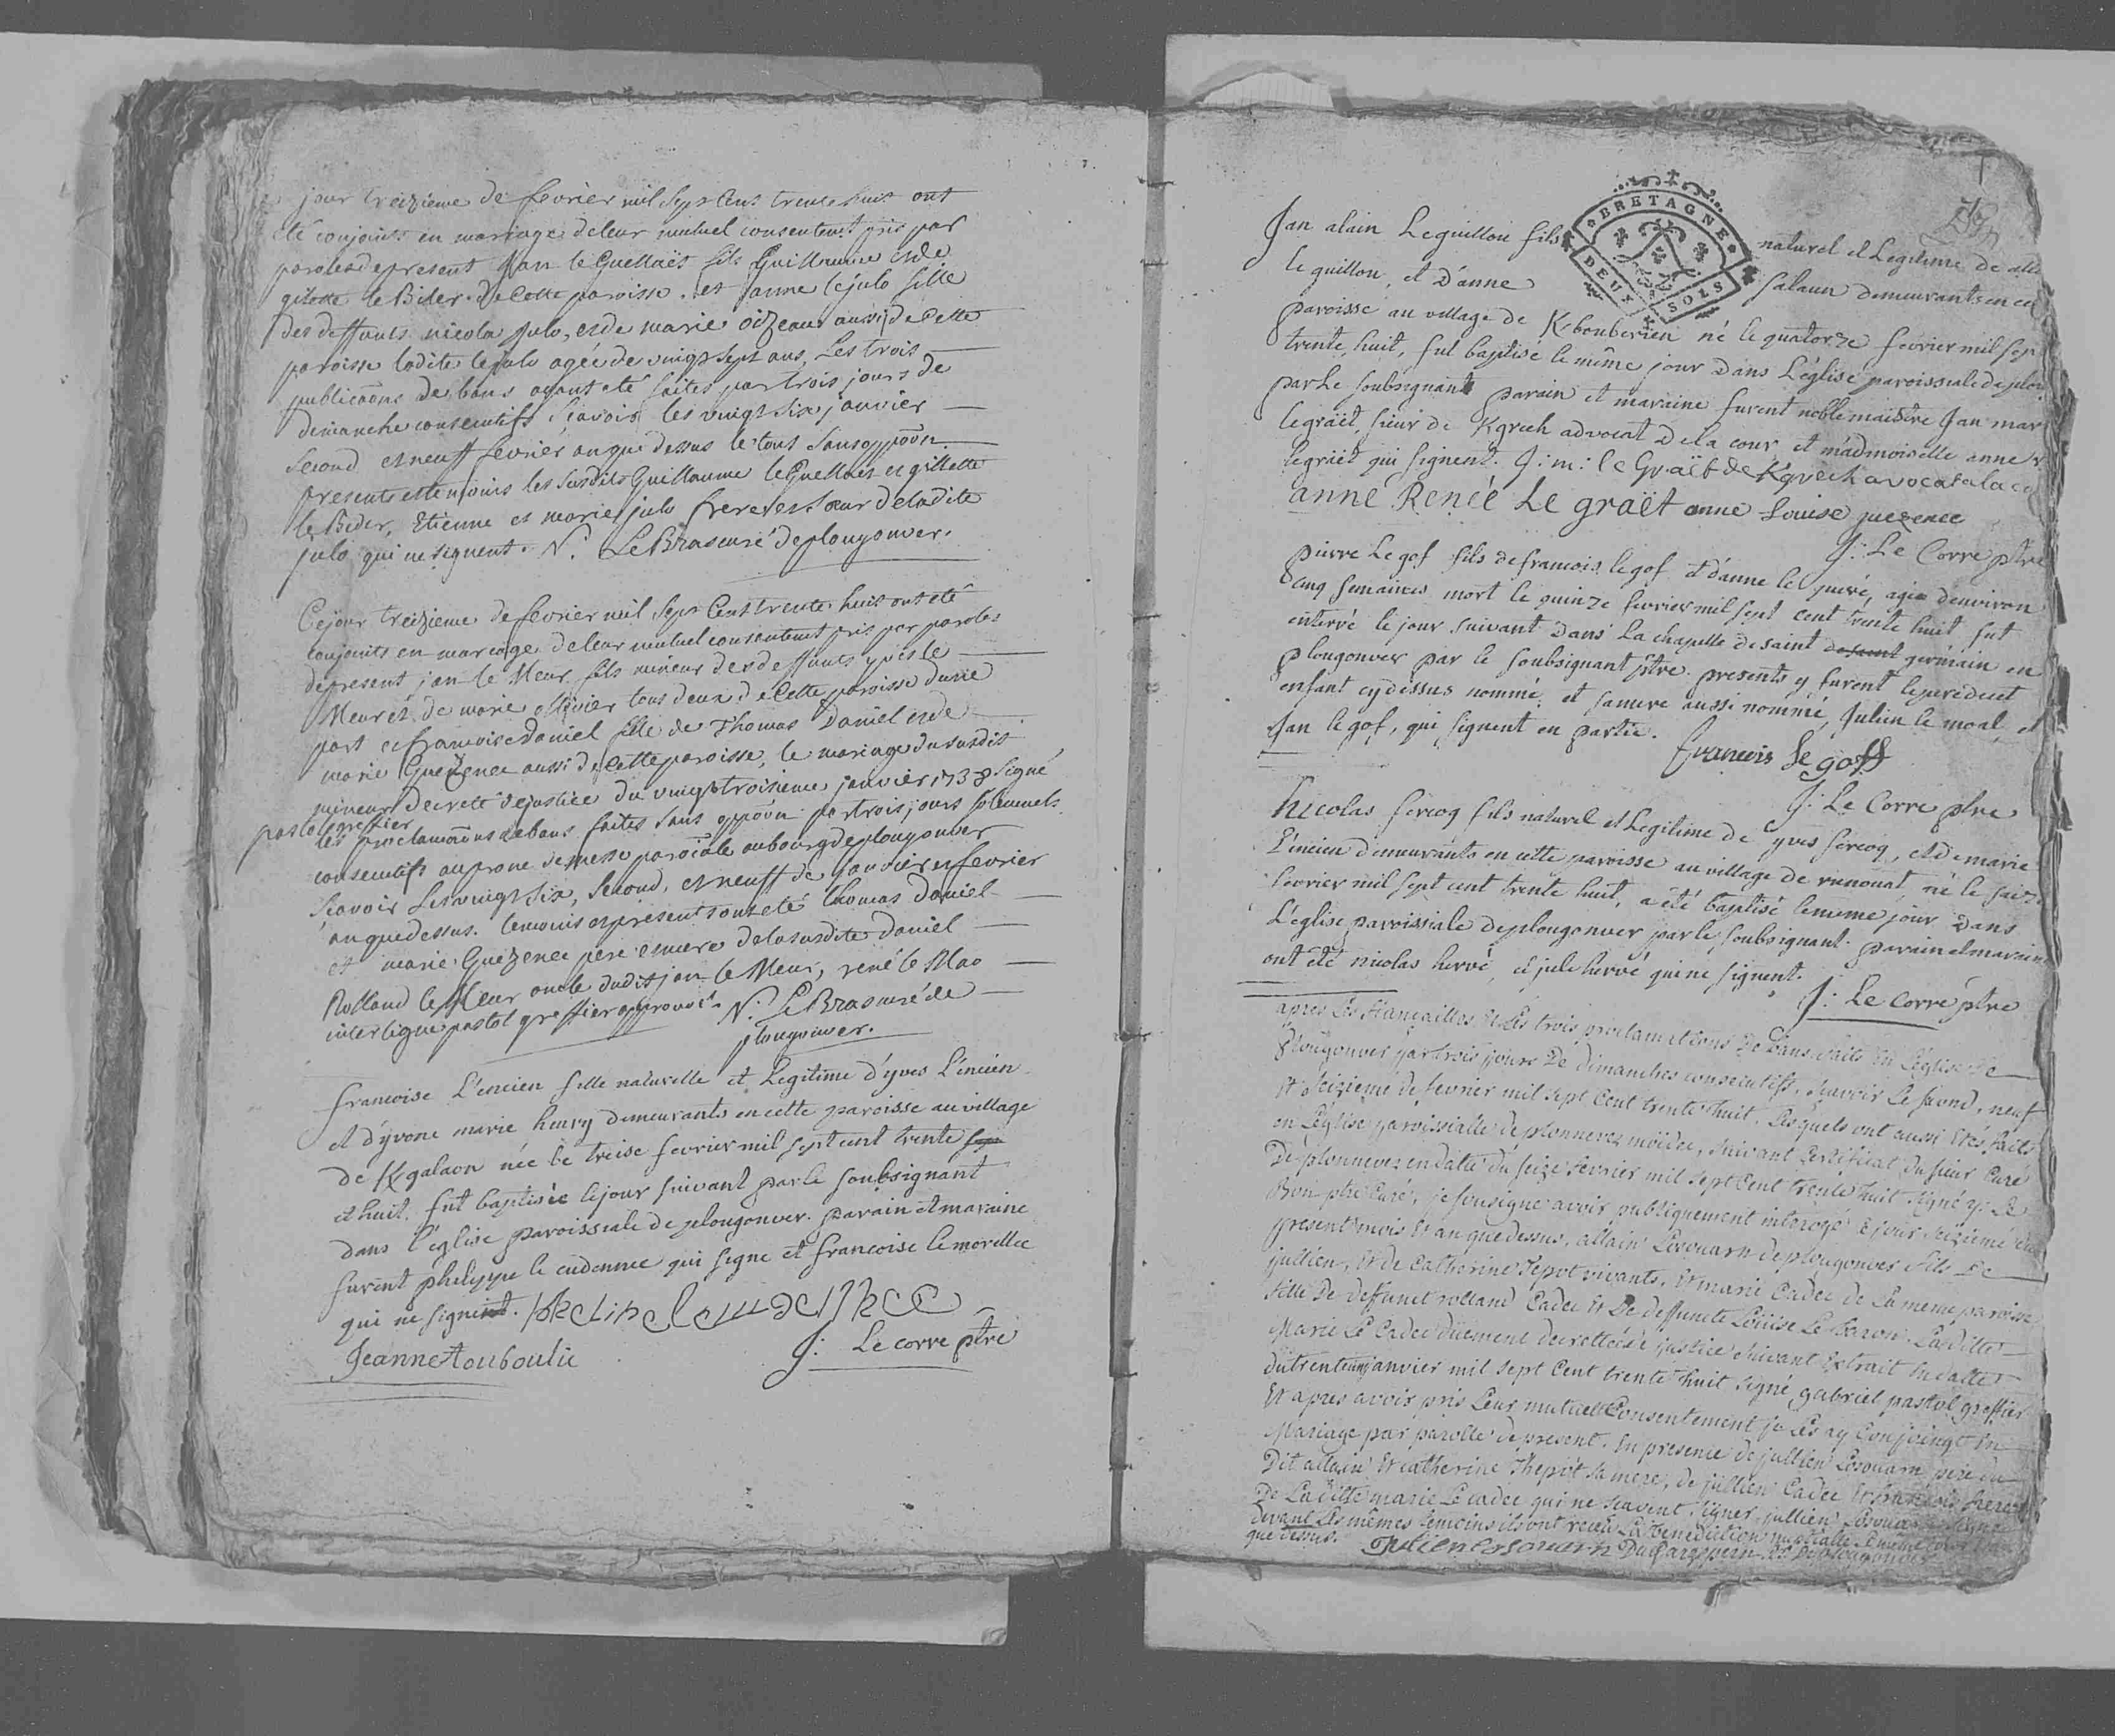 jour treizieme de fevrier mil sept cens trente huit ont
eté conjoints en mariage de leur mutuel consentemt pris par
paroles de present jan le Guellaët fils Guillaume et de
gilette le Bider de cette paroisse et janne le julo fille
des deffunts nicolas julo, et de marie oizeau aussi de cette
paroisse ladite le julo agée de vingt sept ans, Les trois
publicaons de bans ayant eté faites par trois jours de
dimanche consecutifs sçavoir les vingt six janvier
second et neuff fevrier an que dessus le tout sans oppoon
presents et temoins les susdits Guillaume le Guellaët et gillette
le Bider, Etienne et marie julo frere et soeur de ladite
julo qui ne signent. N. Le Bras curé de plougonver.
Ce jour treizieme de fevrier mil sept cens trente huit ont eté
conjoints en mariage de leur mutuel consentemt pris par paroles
de present jan le Meur fils mineur des deffunts yves le
Meur et de marie ollivier tous deux de cette paroisse d'une
part et francoise Daniel fille de Thomas Daniel et de
marie Guezenec aussi de cette paroisse, le mariage du susdit
mineur decreté de justice du vingt troisieme janvier 1738 signé
pastol greffier
les proclamaons de bans faites sans oppoon par trois jours solemnels
consecutifs au prone de messe paroiale au bourg de plougonver
sçavoir les vingt six, second, et neuff de janvier et fevrier
an que dessus. temoins et presents ont eté thomas Daniel
et marie Guezenec pere et mere de la susdite Daniel
Rolland le Meur oncle dudit jan le Meur, rené le Mao
interligne pastol greffier approuvé. N. Le Bras curé de
plougonver.
francoise L'encien fille naturelle et Legitime d'yves L'encien
et d'yvone marie henry demeurants en cette paroisse au village
de Kgalaon née le treise fevrier mil sept cent trente sep
et huit, fut baptisée le jour suivant par le soubsignant
dans l'église paroissiale de plougonver. parain et maraine
furent phelippe le cudennec qui signe et francoise le morellec
qui ne signent. phelipe le cudennec
Jeanne Touboulic J: Le corre ptre
Jan alain Le guillou fils naturel et Legitime de alle
BRETAGNE
DEUX SOLS
le guillou, et D'anne salaun demeurants en cette
paroisse au village de Kbouberien né le quatorze fevrier mil sept
trente huit, fut baptisé le même jour dans L'église paroissiale de plou
par Le soubsignant parain et maraine furent noble maistre Jan mar
le graët, sieur de Kgrech advocat de la cour, et mademoiselle anne r
le graët qui signent. J: m: le Graët de Kgrech avocat a la cou
anne Renée Le graët anne Louise guezenec
J: Le Corre ptre
pierre Le gof fils de francois le gof et d'anne le queré, agée denviron
cinq semaines mort le quinze fevrier mil sept cent trente huit fut
enterré le jour suivant dans La chapelle de saint de saint germain en
plougonver par le soubsignant ptre. presents y furent le pere de cet
enfant cy dessus nommé, et sa mere aussi nommé, Julien le moal, et
Jan le gof, qui signent en partie.
francois Le goff
J: Le Corre ptre
Nicolas fercoq fils naturel et Legitime de yves fercoq, et de marie
L'encien demeurants en cette paroisse au village de runonat né le seize
fevrier mil sept cent trente huit, a été baptisé le meme jour dans
L'église paroissiale de plougonver par le soubsignant. parain et maraine
ont été nicolas hervé, et jule hervé qui ne signent.
J: Le corre ptre
apres Les fiançailles Et Les trois proclamations de bans faits En L'église de
plougonver par trois jours De dimanches consecutifs, sçavoir Le second, neuf
Et seizieme de fevrier mil sept Cent trente huit, Lesquels ont aussi étés faits
en L'église paroissialle de plounevez moëdec, suivant Certificat du sieur Curé
De plounevez en datte du seize fevrier mil sept Cent trente huit signé y: Le
Bon ptre Curé, je sousigné avoir publiquement interogé ce jour seizieme du
present mois Et an que dessus, allain Lesouarn de plougonver fils de
jullien, Et de Catherine Thepot vivants, Et marie Cadec de La meme paroisse
fille De deffunct rolland Cadec Et De deffuncte Louise Le Baron. Laditte
Marie Le Cadec düement decrettée de justice suivant Extrait En datte
du trente un janvier mil sept Cent trente huit signé gabriel pastol greffier
Et apres avoir pris Leur mutuel Consentement je Les ay Conjoingt En
Mariage par parolle de present. En presence de jullien Lesouarn pere du
Dit allain Et catherine Thepot sa mere, de jullien Cadec Et françois freres
De La ditte marie Le cadec qui ne sçavent signer, jullien Lesouarn signe
devant Les mêmes temoins ils ont receu La Benediction nuptialle Le meme jour
que dessus. Julien Lesouarn